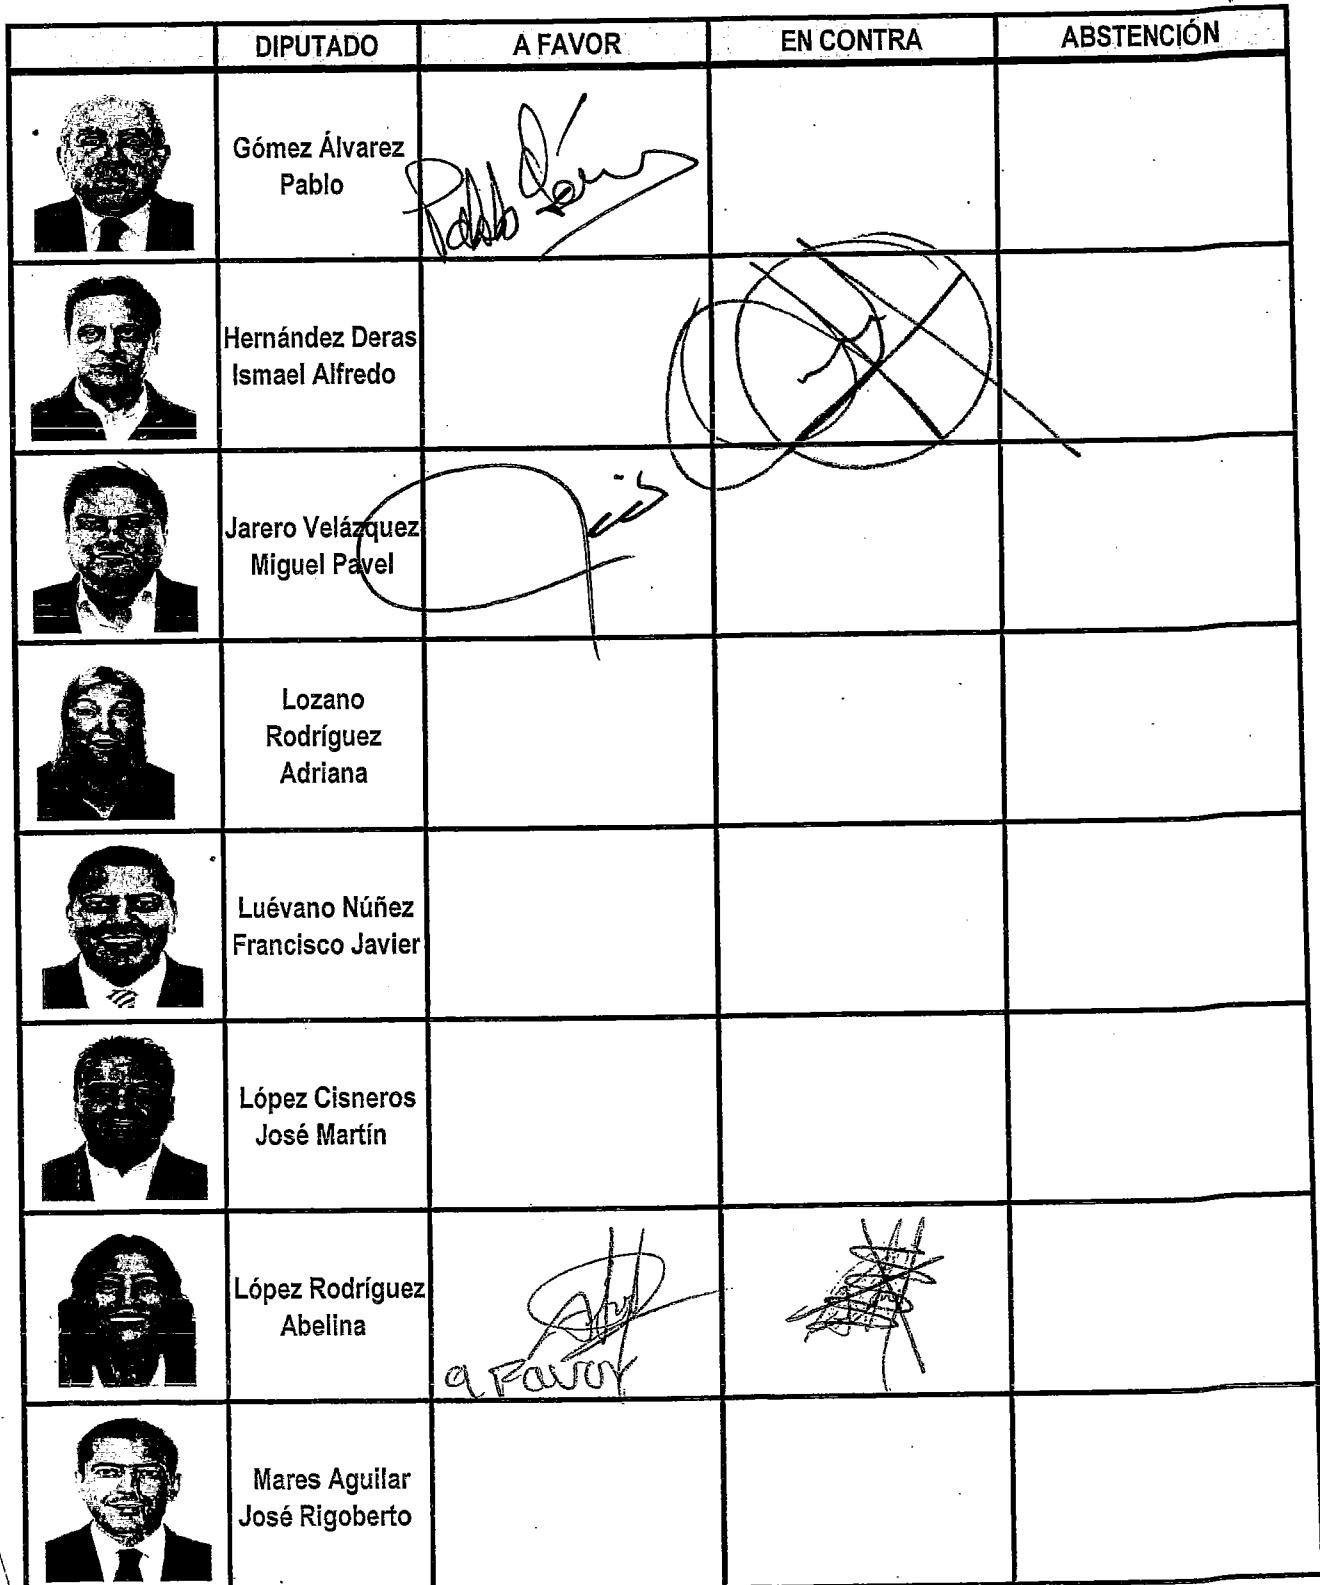 DIPUTADO A FAVOR EN CONTRA ABSTENCIÓN
Gómez Álvarez
Pablo
Pablo Gómez
Hernández Deras
Ismael Alfredo
Jarero Velázquez
Miguel Pavel
Lozano
Rodríguez
Adriana
Luévano Núñez
Francisco Javier
López Cisneros
José Martín
López Rodríguez
Abelina
a Favor
Mares Aguilar
José Rigoberto